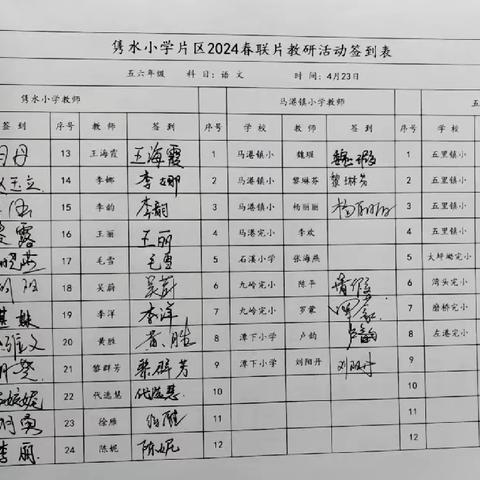 隽水小学片区2024春联片教研活动签到表
五六年级 科目：语文 时间：4月23日
隽水小学教师 马港镇小学教师 五
签到 序号 教师 签到 序号 学校 教师 签到 序号 学校
13 王海霞 王海霞 1 马港镇小 魏瑕 魏瑕 1 五里镇小
14 李娜 李娜 2 马港镇小 黎琳芬 黎琳芬 2 五里镇小
15 李韵 李韵 3 马港镇小 杨丽丽 杨丽丽 3 五里镇小
露 16 王丽 王丽 4 马港完小 李欢 4 五里完小
17 毛雪 毛雪 5 石溪小学 张海燕 5 大坪坳完小
18 吴蔚 吴蔚 6 九岭完小 陈平 请假 6 湾头完小
19 李洋 李洋 7 九岭完小 罗蒙 罗蒙 7 磨桥完小
20 黄胜 黄胜 8 潭下小学 卢韵 卢韵 8 左港完小
21 黎群芳 黎群芳 9 潭下小学 刘阳丹 刘阳丹 9
妮 22 代适慧 代适慧 10 10
23 徐雁 徐雁 11 11
李丽 24 陈妮 陈妮 12 12